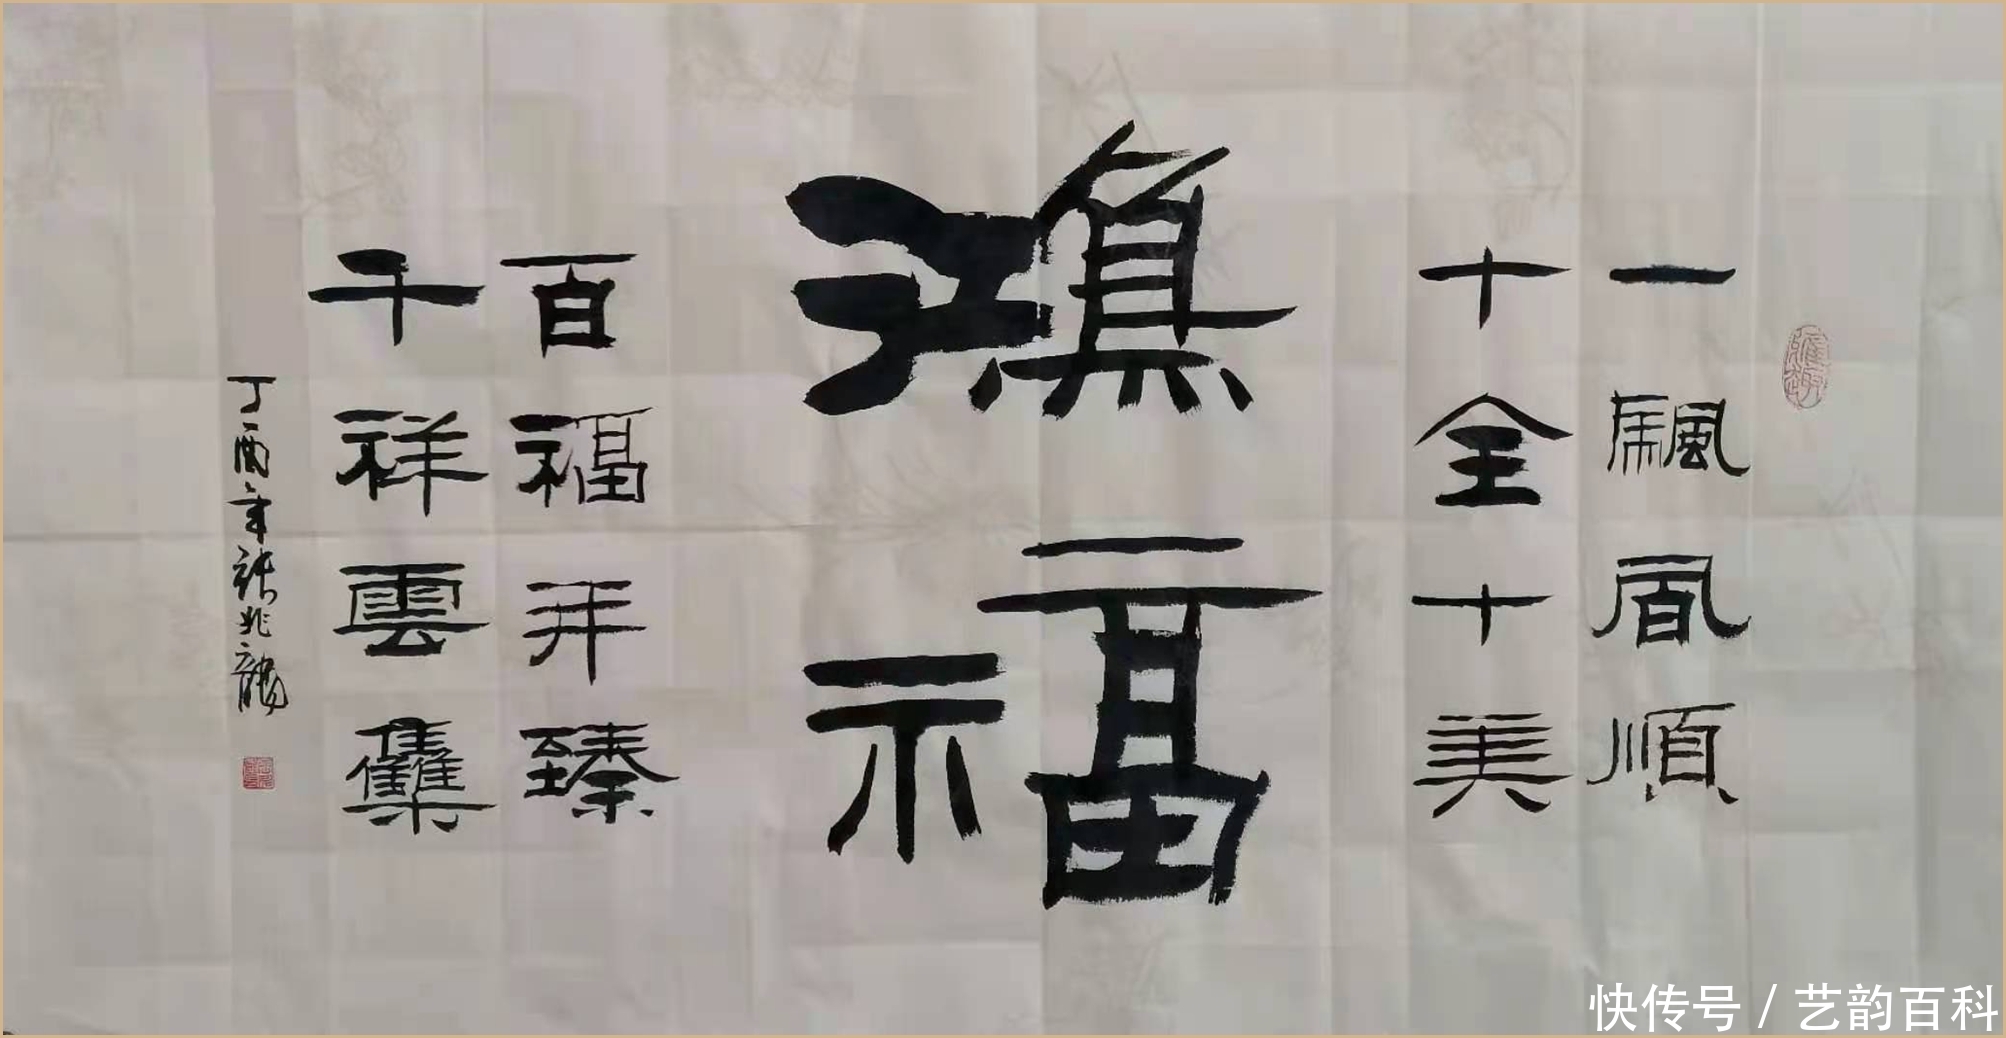 一颿凮順
十全十美
鴻福
百福并臻
千祥雲雧
丁酉年張兆龍
快传号 / 艺韵百科